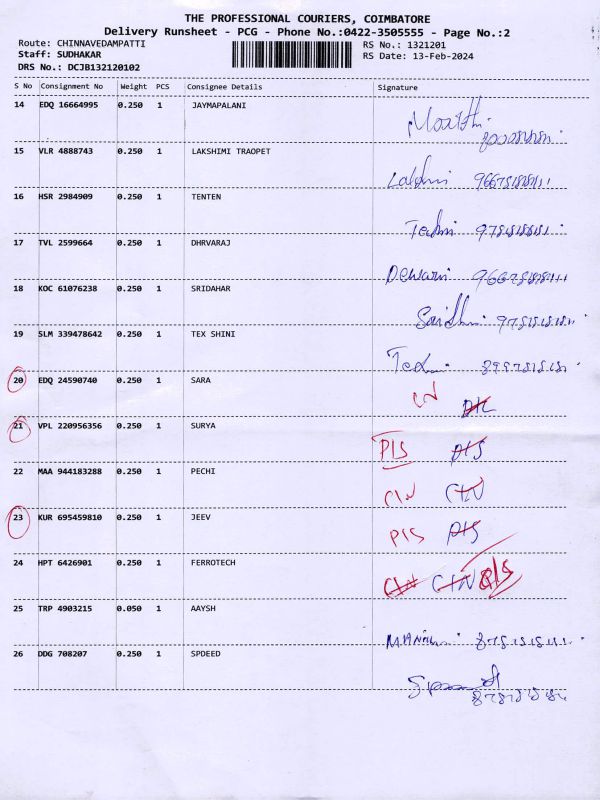 THE PROFESSIONAL COURIERS, COIMBATORE
Delivery Runsheet - PCG - Phone No.:0422-3505555 - Page No.:2
Route: CHINNAVEDAMPATTI RS No.: 1321201
Staff: SUDHAKAR RS Date: 13-Feb-2024
DRS No.: DCJB132120102
S No Consignment No Weight PCS Consignee Details Signature
14 EDQ 16664995 0.250 1 JAYMAPALANI
15 VLR 4888743 0.250 1 LAKSHIMI TRAOPET
16 HSR 2984909 0.250 1 TENTEN
17 TVL 2599664 0.250 1 DHRVARAJ
18 KOC 61076238 0.250 1 SRIDAHAR
19 SLM 339478642 0.250 1 TEX SHINI
20 EDQ 24590740 0.250 1 SARA
21 VPL 220956356 0.250 1 SURYA PIS
22 MAA 944183288 0.250 1 PECHI CIN CIN
23 KUR 695459810 0.250 1 JEEV PIS PIS
24 HPT 6426901 0.250 1 FERROTECH CIN CIN PIS
25 TRP 4903215 0.050 1 AAYSH
26 DDG 708207 0.250 1 SPDEED